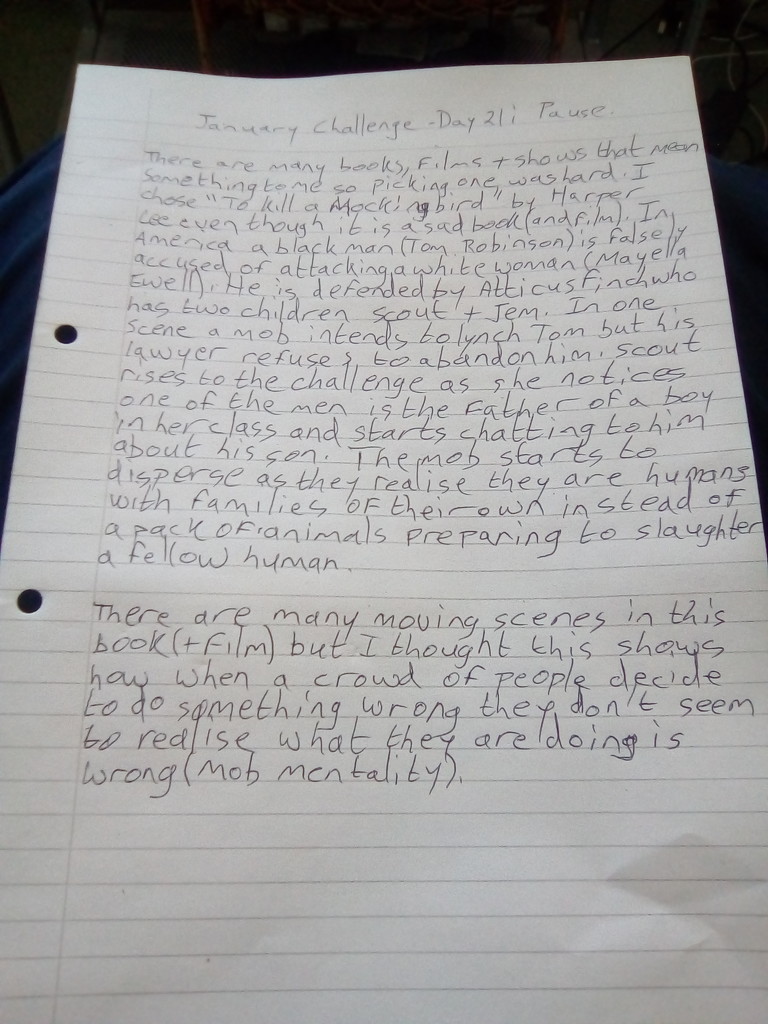 January Challenge - Day 21: Pause.
There are many books, films + shows that mean
something to me so picking one, was hard. I
chose "To kill a Mockingbird" by Harper
Lee even though it is a sad book (and film). In
America a black man (Tom Robinson) is falsely
accused of attacking a white woman (Mayella
Ewell). He is defended by Atticus Finch who
has two children scout + Jem. In one
scene a mob intends to lynch Tom but his
lawyer refuses to abandon him. Scout
rises to the challenge as she notices
one of the men is the father of a boy
in her class and starts chatting to him
about his son. The mob starts to
disperse as they realise they are humans
with families of their own instead of
a pack of animals preparing to slaughter
a fellow human.
There are many moving scenes in this
book (+ film) but I thought this shows
how when a crowd of people decide
to do something wrong they don't seem
to realise what they are doing is
wrong (mob mentality).